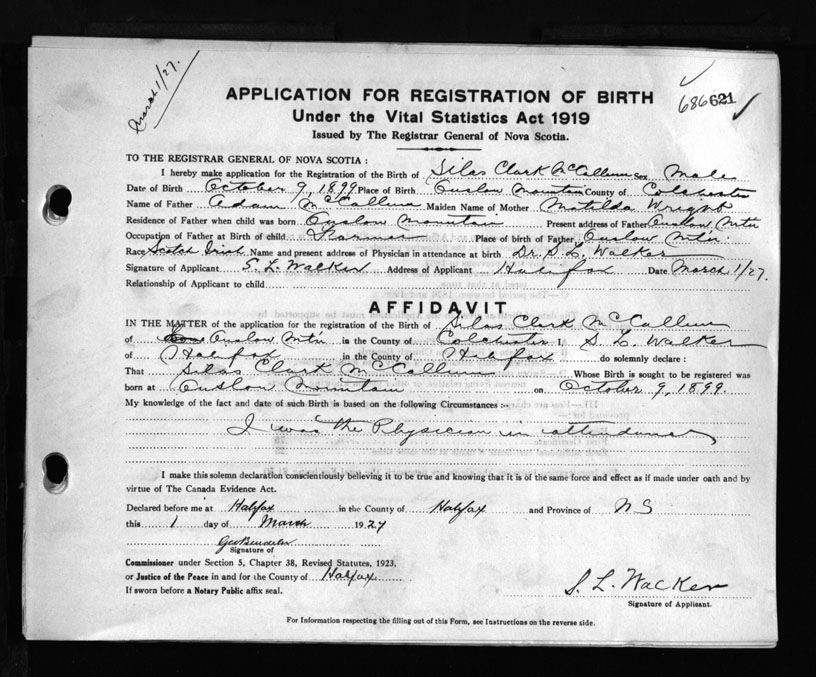 March 1/27.
686 621
APPLICATION FOR REGISTRATION OF BIRTH
Under the Vital Statistics Act 1919
Issued by The Registrar General of Nova Scotia.
TO THE REGISTRAR GENERAL OF NOVA SCOTIA :
I hereby make application for the Registration of the Birth of Silas Clark McCallum Sex Male
Date of Birth October 9, 1899 Place of Birth Onslow Mountain County of Colchester
Name of Father Adam McCallum Maiden Name of Mother Matilda Wright
Residence of Father when child was born Onslow Mountain Present address of Father Onslow Mt'n
Occupation of Father at Birth of child Farmer Place of birth of Father Onslow Mt'n.
Race Scotch Irish Name and present address of Physician in attendance at birth Dr. S. L. Walker
Signature of Applicant S. L. Walker Address of Applicant Halifax Date March 1/27.
Relationship of Applicant to child
AFFIDAVIT
IN THE MATTER of the application for the registration of the Birth of Silas Clark McCallum
of Onslow Mt'n in the County of Colchester I S. L. Walker
of Halifax in the County of Halifax do solemnly declare :
That Silas Clark McCallum Whose Birth is sought to be registered was
born at Onslow Mountain on October 9, 1899.
My knowledge of the fact and date of such Birth is based on the following Circumstances :-
I was the Physician in attendance
I make this solemn declaration conscientiously believing it to be true and knowing that it is of the same force and effect as if made under oath and by
virtue of The Canada Evidence Act.
Declared before me at Halifax in the County of Halifax and Province of N S
this 1 day of March 1927
Signature of
Commissioner under Section 5, Chapter 38, Revised Statutes, 1923,
or Justice of the Peace in and for the County of Halifax
If sworn before a Notary Public affix seal.
S. L. Walker
Signature of Applicant.
For Information respecting the filling out of this Form, see Instructions on the reverse side.